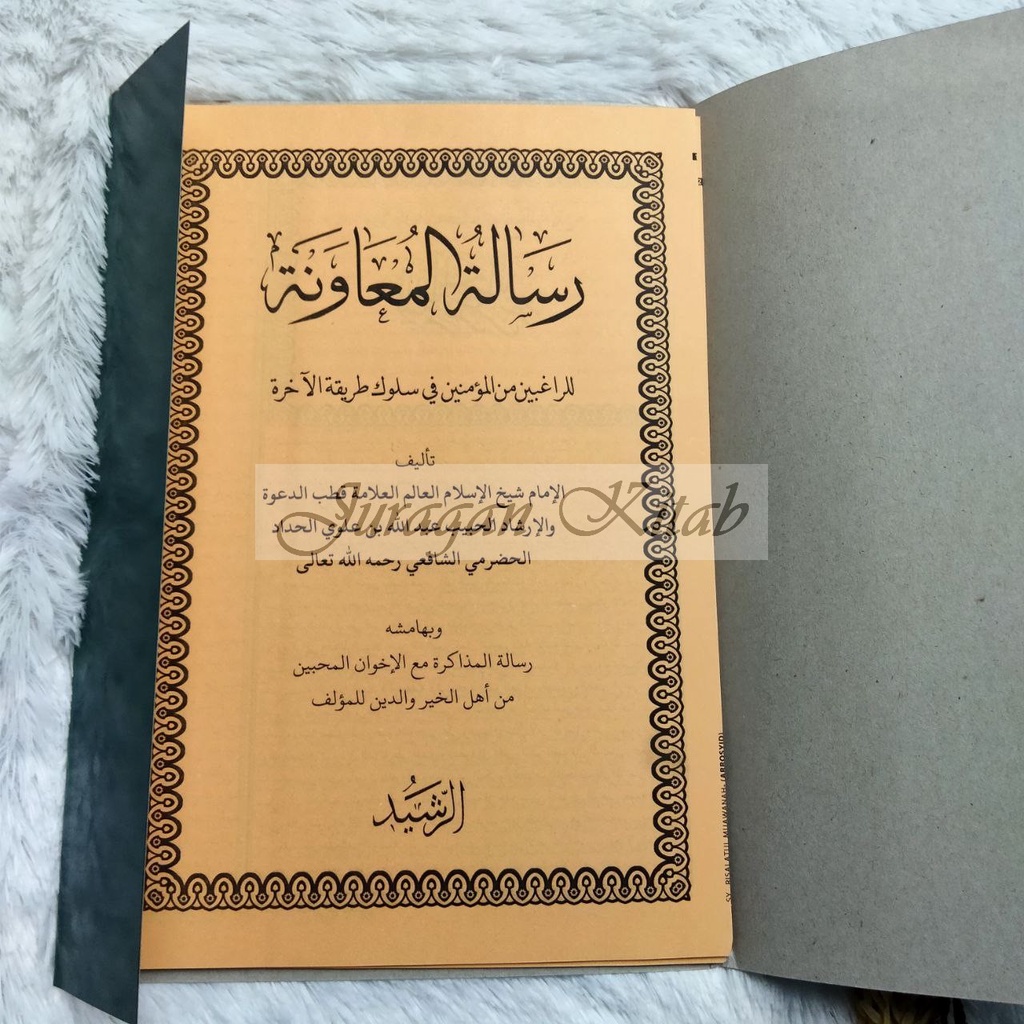 رسالةُ المُعَاوَنَة
للراغبين من المؤمنين في سلوك طريقة الآخرة
تأليف
الإمام شيخ الإسلام العالم العلامة قطب الدعوة
والإرشاد الحبيب عبد الله بن علوي الحداد
الحضرمي الشافعي رحمه الله تعالى
وبهامشه
رسالة المذاكرة مع الإخوان المحبين
من أهل الخير والدين للمؤلف
الرَّشِيُد
Juragan Kitab
RISALATUL MUAWANAH (ARROSYID)